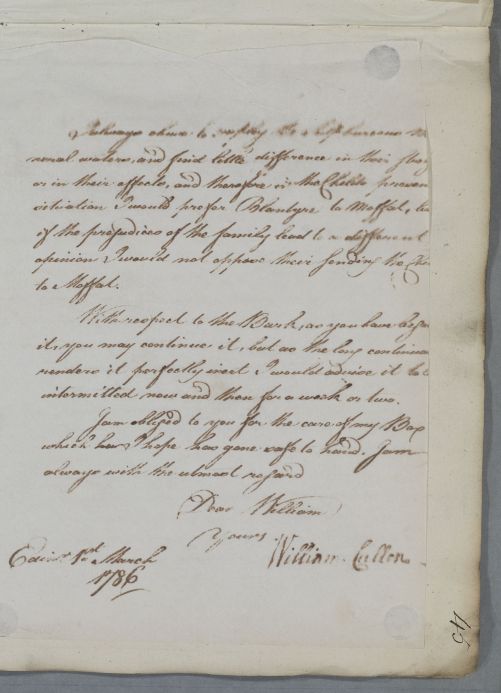 I always chuse to employ the sulphureous
neral waters, and find little difference in their
or in their effects, and therefore in the Childs presen
situation I would prefer Blantyre to Moffat, but
of the prejudices of the family lead to a different
opinion I would not oppose their sending the
to Moffat.
With respect to the Bark, as you have begu
it, you may continue it, but as the long continua
renders it perfectly inert I would advise it to be
intermitted now and then for a week or two.
I am obliged to you for the care of my Box
which I hope has gone safe to hand. I am
always with the utmost regard
Dear William
Yours
William Cullen
Edinr 1st March
1786
45